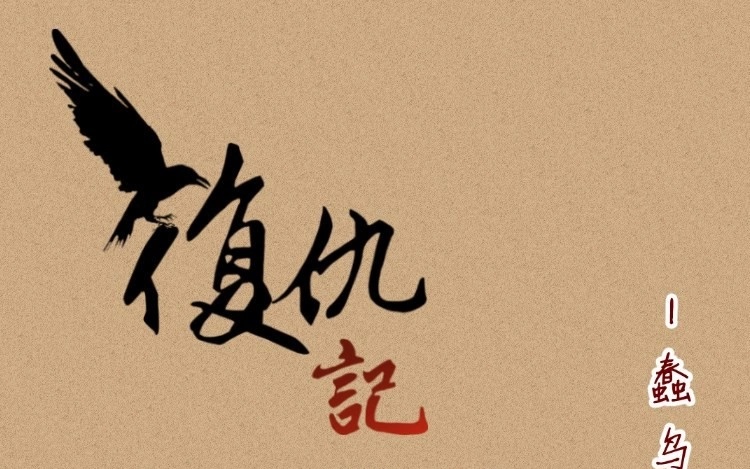 復仇
記
-蠢鸟